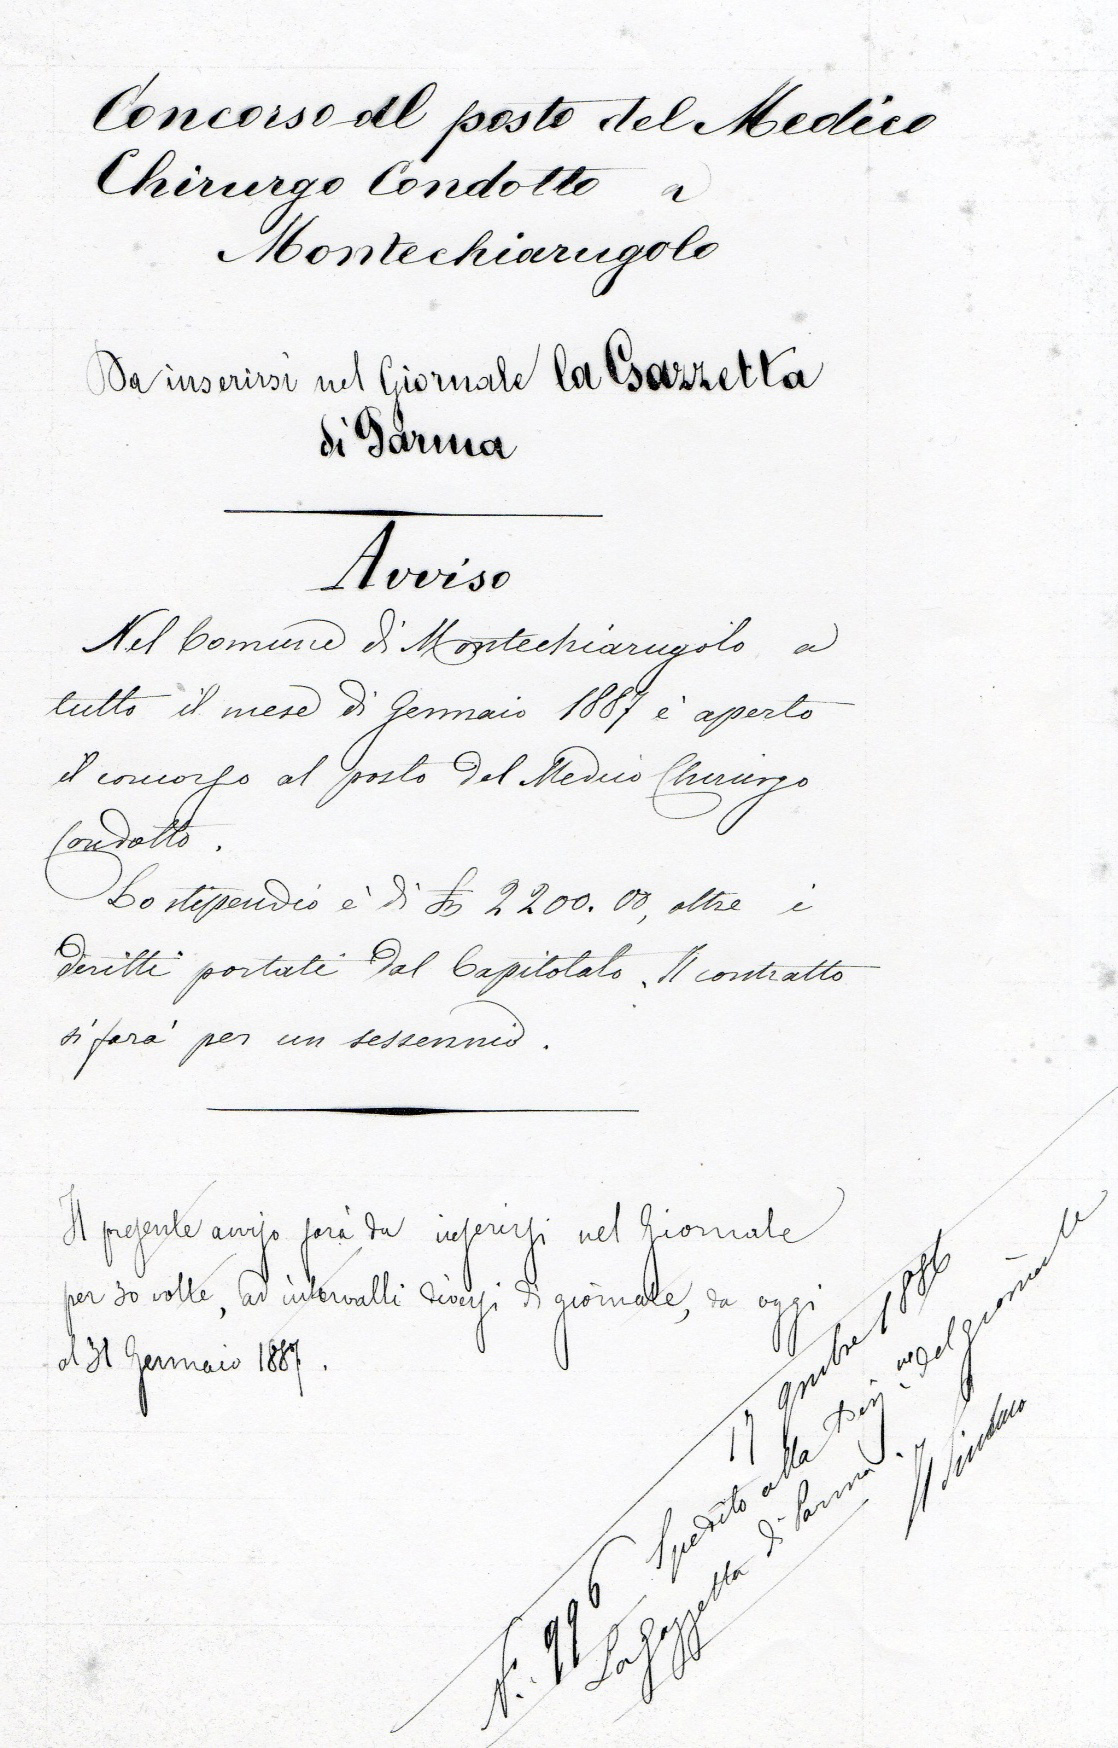 Concorso al posto del Medico
Chirurgo Condotto a
Montechiarugolo
Da inserirsi nel Giornale la Gazzetta
di Parma
Avviso
Nel Comune di Montechiarugolo a
tutto il mese di Gennaio 1887 è aperto
il concorso al posto del Medico Chirurgo
Condotto.
Lo stipendio è di £ 2200.00, oltre i
diritti portati dal Capitolato. Il contratto
si farà per un sessennio.
Il presente avviso sarà da inserirsi nel Giornale
per 30 volte, ad intervalli diversi di giornale, da oggi
al 31 Gennaio 1887.
N. 996
17 9mbre 1886
Spedito alla Dirz.ne del giornale
La Gazzetta di Parma.
Il Sindaco